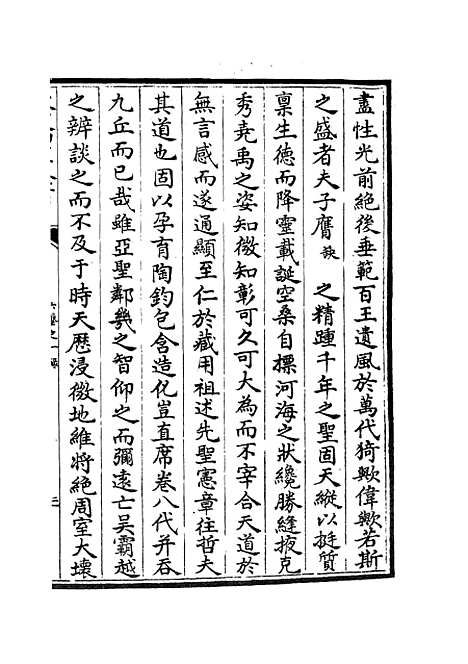 盡性光前絶後垂範百王遺風於萬代猗歟偉歟若斯
之盛者夫子膺缺之精踵千年之聖固天縱以挺質
禀生德而降靈載誕空桑自摽河海之狀纔勝縫掖克
秀堯禹之姿知微知彰可久可大為而不宰合天道於
無言感而遂通顯至仁於藏用祖述先聖憲章往哲夫
其道也固以孕育陶鈞包含造化豈直席卷八代并吞
九丘而已哉雖亞聖鄰幾之智仰之而彌遠亡吴霸越
之辨談之而不及于時天歴浸微地維將絶周室大壞